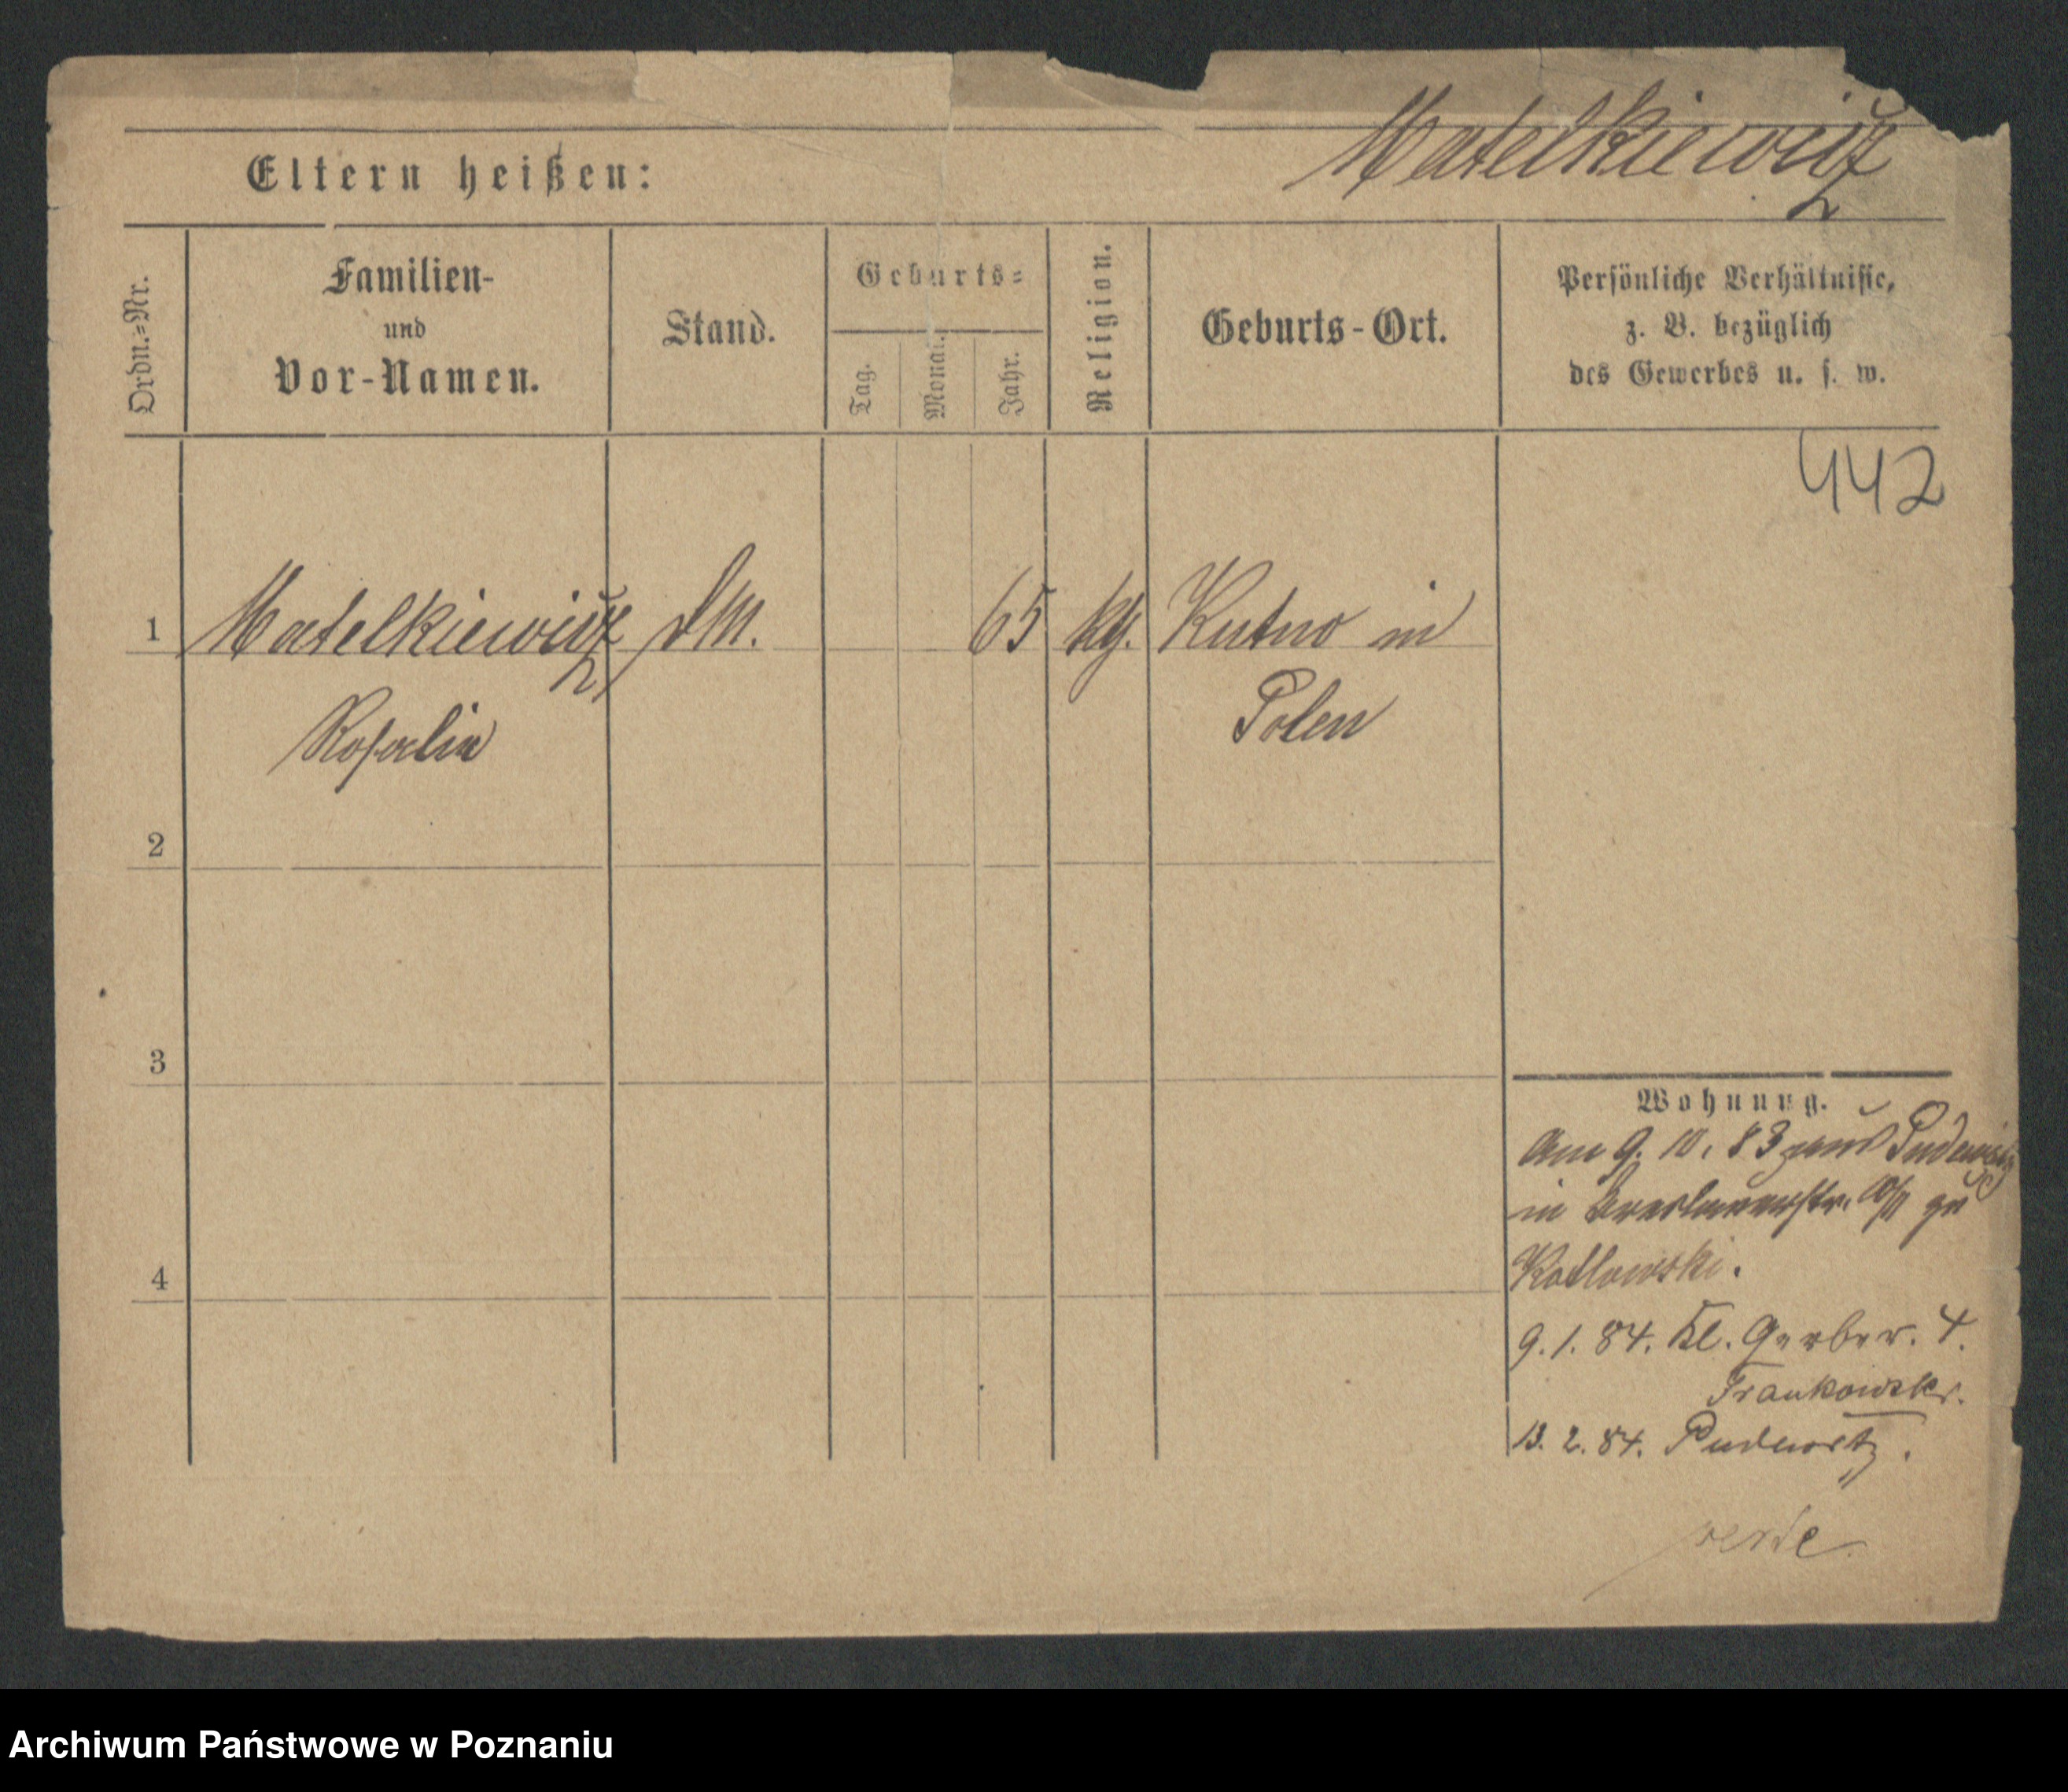 Matelkiewicz
Eltern heißen:
Ordn.=Nr.
Familien-
und
Vor-Namen.
Stand.
Geburts=
Tag.
Monat.
Jahr.
Religion.
Geburts-Ort.
Persönliche Verhältnisse,
z. B. bezüglich
des Gewerbes u. s. w.
442
1 Matelkiewicz DM. 65 kg. Kutno in
Rosalia Polen
2
3
4
Wohnung.
Am 9. 10. 83 aus Pudewitz
in Breslauerstr. zu
Kotlowski.
9. 1. 84. Kl. Gerber. 4.
Frankowski.
13. 2. 84. Pudewitz.
Archiwum Państwowe w Poznaniu